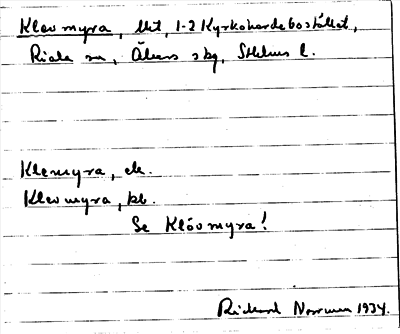 Klovmyra, lht, 1-2 Kyrkoherdebostället,
Riala sn, Åkers skg, Sthlms l.
Klemyra, ek.
Klevmyra, kb.
Se Klövmyra!
Rickard Norrman 1934.